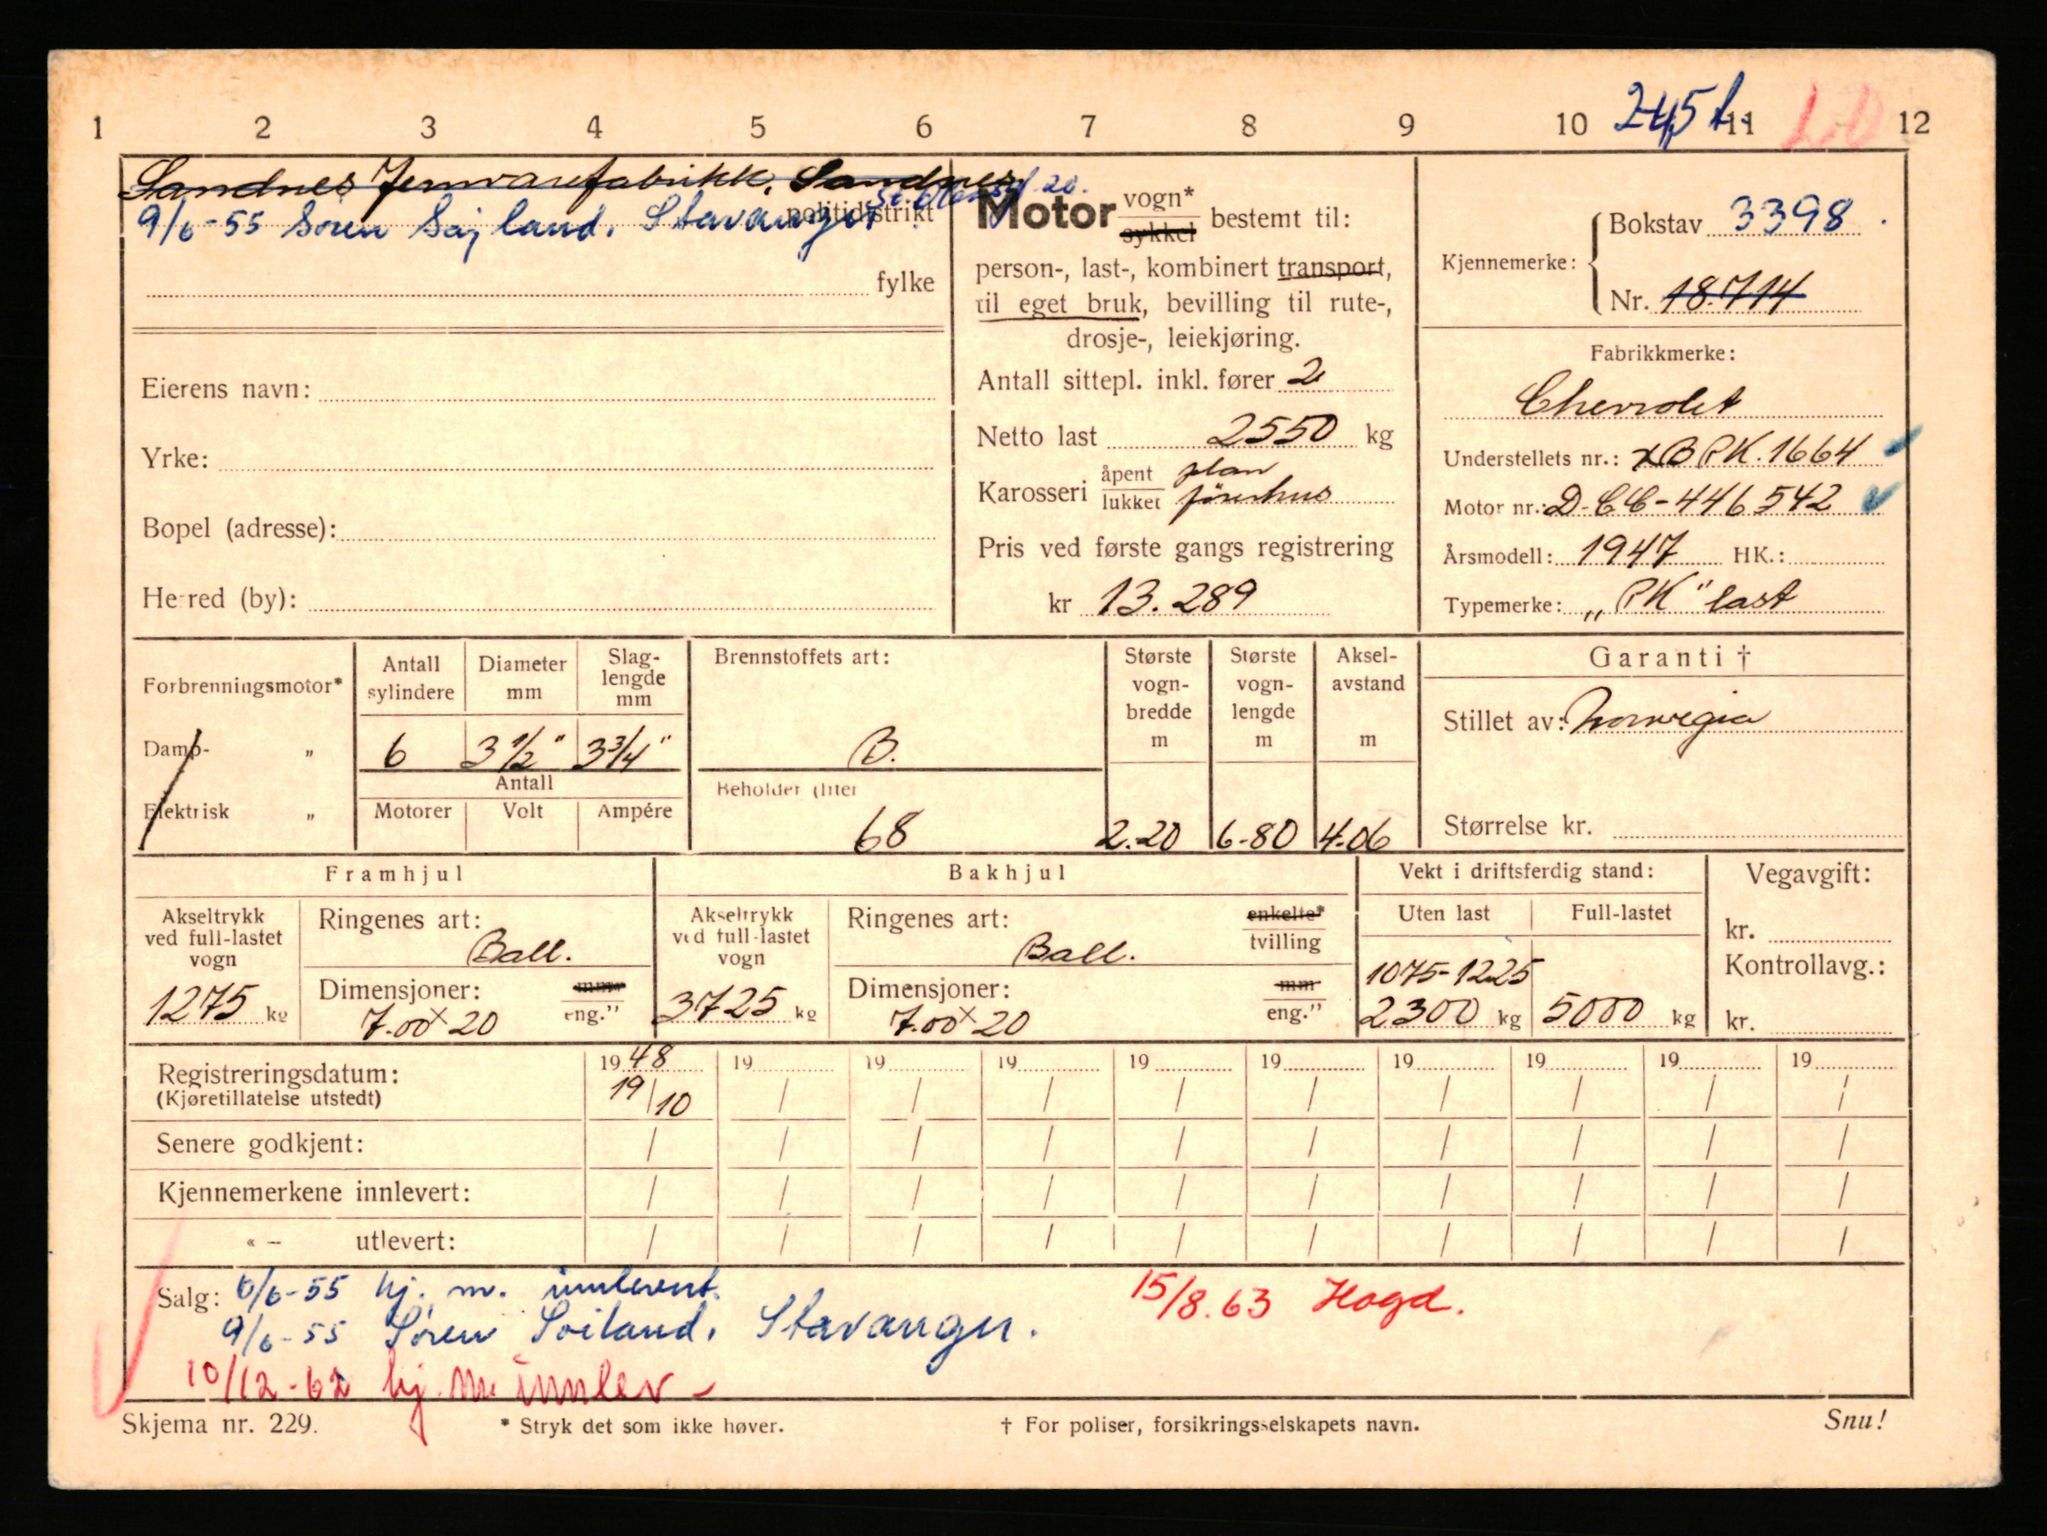 2,5 t.
1 2 3 4 5 6 7 8 9 10 11 12
Sandnes Jernvarefabrikk, Sandnes
9/6-55 Sören Søyland, Stavanger politidistrikt
fylke
Eierens navn:
Yrke:
Bopel (adresse):
Herred (by):
Motor vogn*
sykkel bestemt til:
person-, last-, kombinert transport,
til eget bruk, bevilling til rute-,
drosje-, leiekjøring.
Antall sittepl. inkl. fører 2
Netto last 2550 kg
Karosseri åpent plan
lukket førerhus
Pris ved første gangs registrering
kr 13.289
Kjennemerke: Bokstav 3398
Nr. 18.714
Fabrikkmerke:
Chevrolet
Understellets nr.: xBPK.1664
Motor nr.: D-CC-446542
Årsmodell: 1947 HK.:
Typemerke: „PK" last
Forbrenningsmotor*
Damp- „
Elektrisk „
Antall sylindere
6
Diameter mm
3 1/2"
Slag-lengde mm
3 3/4"
Antall
Motorer Volt Ampére
Brennstoffets art:
B.
Beholder (liter
68
Største vogn-bredde m
2.20
Største vogn-lengde m
6-80
Aksel-avstand m
4-06
Garanti †
Stillet av: Norwegia
Størrelse kr.
Framhjul
Akseltrykk ved full-lastet vogn
1275 kg
Ringenes art:
Ball.
Dimensjoner: mm
eng."
7.00 x 20
Bakhjul
Akseltrykk ved full-lastet vogn
3725 kg
Ringenes art: enkelte*
tvilling
Ball.
Dimensjoner: mm
eng."
7.00 x 20
Vekt i driftsferdig stand:
Uten last Full-lastet
1075-1225
2300 kg 5000 kg
Vegavgift:
kr.
Kontrollavg.:
kr.
Registreringsdatum: 1948 19 19 19 19 19 19 19 19 19
(Kjøretillatelse utstedt) 19/10 / / / / / / / / /
Senere godkjent: / / / / / / / / / /
Kjennemerkene innlevert: / / / / / / / / / /
« – utlevert: / / / / / / / / / /
Salg: 6/6-55 kj. m. innlevert. 15/8.63 Hogd.
9/6-55 Sören Soiland, Stavanger.
10/12-62 kj. m. innlev –
Skjema nr. 229. * Stryk det som ikke høver. † For poliser, forsikringsselskapets navn. Snu!